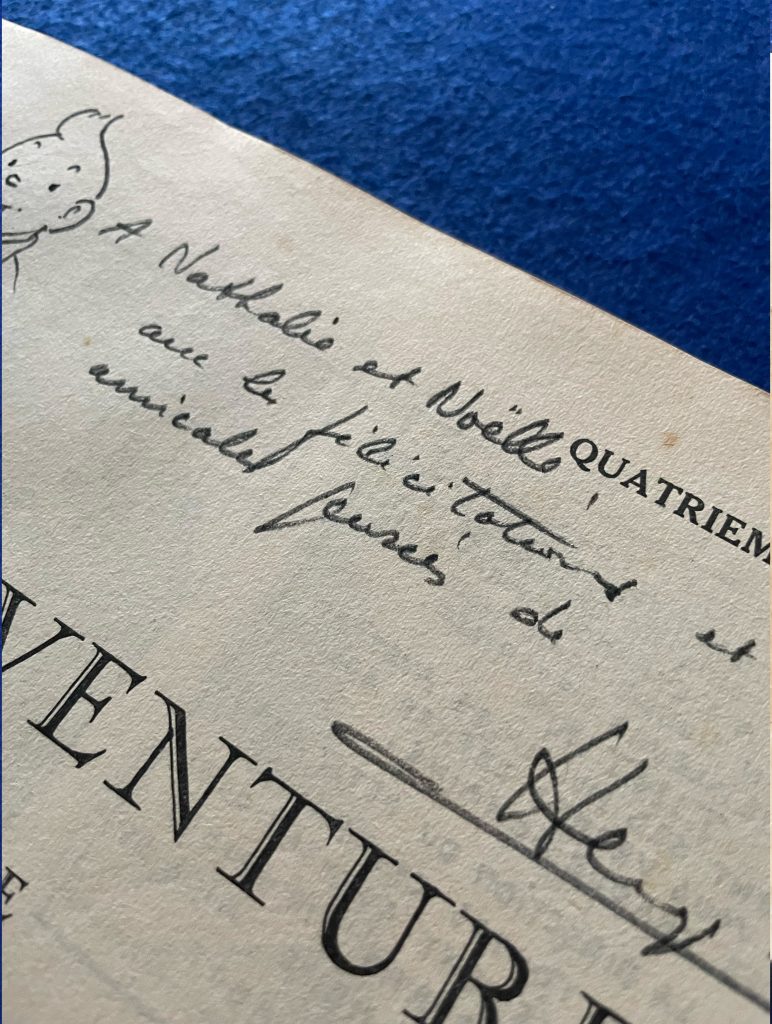 A Nathalie et Noëlle,
QUATRIEM
avec les félicitations et
amicales pensées de
Hergé
VENTURE
E